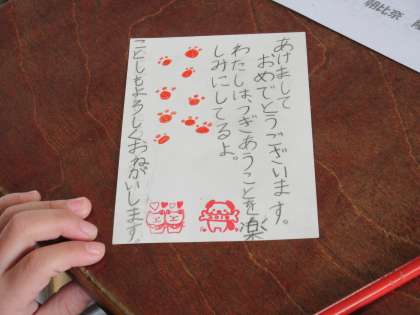 あけまして
おめでとうございます。
わたしは、つぎあうことを楽
しみにしてるよ。
ことしもよろしくおねがいします。
朝比奈